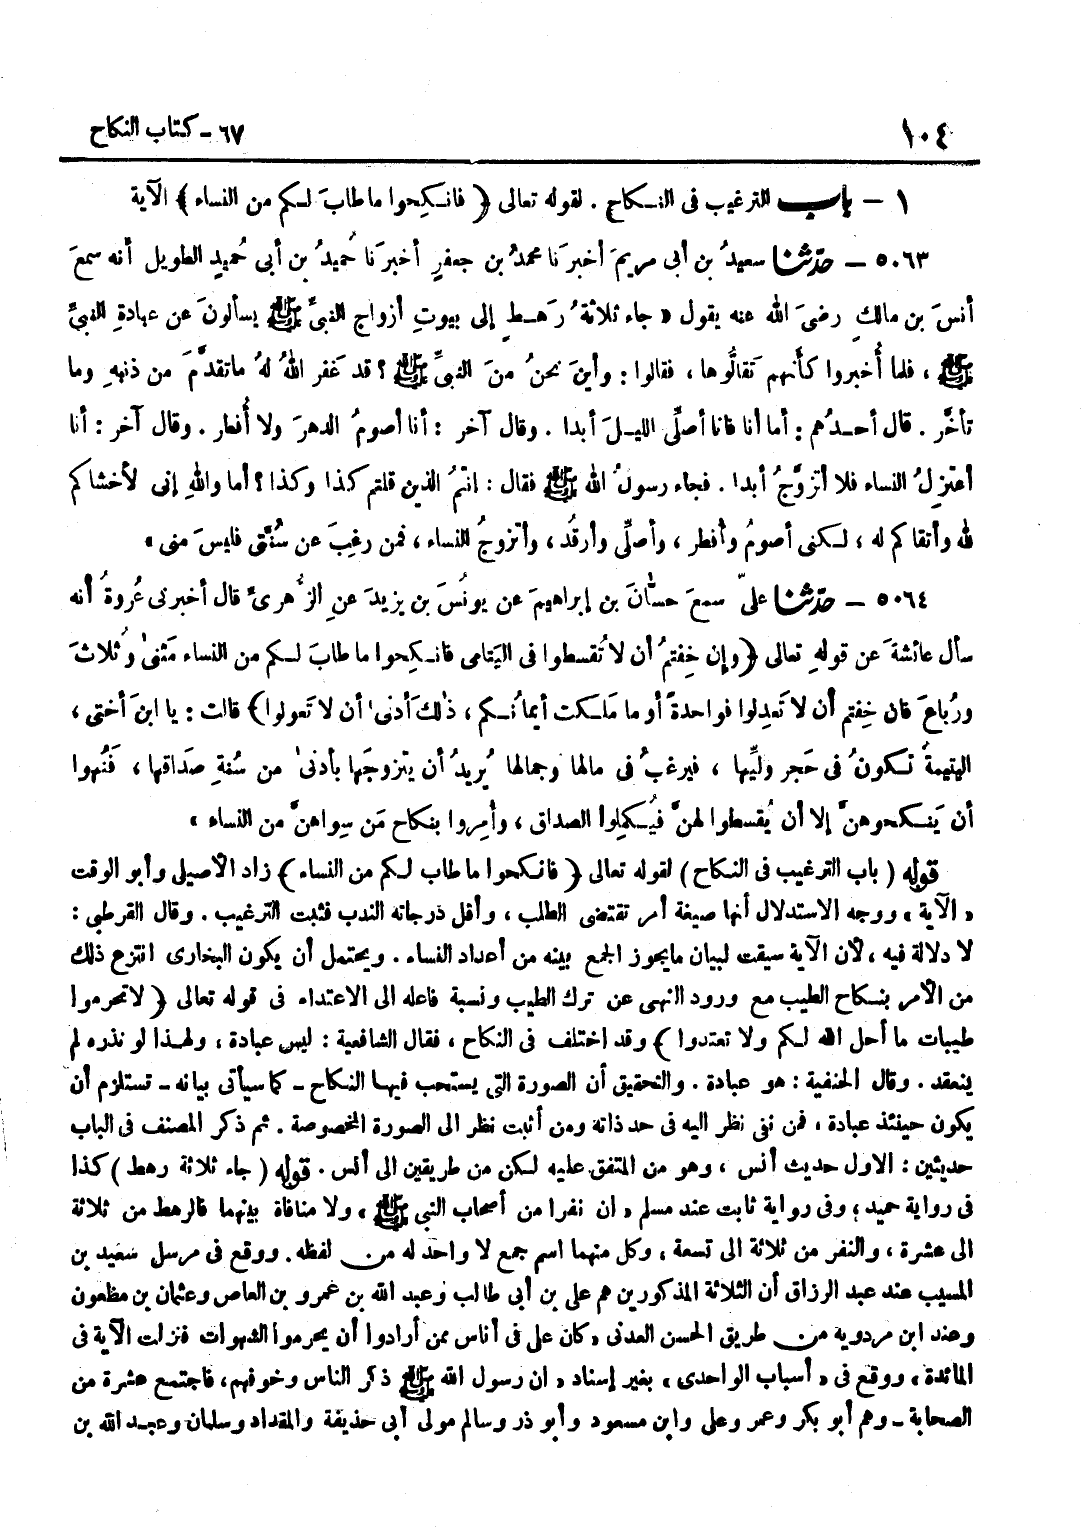 ١٠٤
٦٧ - كتاب النكاح
١ - باب الترغيب فى النكاح . لقوله تعالى ﴿ فانكِحوا ما طابَ لكم من النساء ﴾ الآية
٥٠٦٣ - حدّثنا سعيدُ بن أبى مريمَ أخبرَنا محمدُ بن جعفرٍ أخبرَنا حُميدُ بن أبى حُميدٍ الطويل أنه سمعَ
أنسَ بن مالكٍ رضىَ الله عنه يقول « جاء ثلاثةُ رَهطٍ إلى بيوتِ أزواج النبىِّ ﷺ يسألونَ عن عبادةِ النبىِّ
ﷺ ، فلما أُخبروا كأنهم تَقالُّوها ، فقالوا : وأينَ نحنُ منَ النبىِّ ﷺ ؟ قد غَفر اللهُ لهُ ماتقدَّمَ من ذنبهِ وما
تأخَّر . قال أحدُهم : أما أنا فانا أصلِّى الليلَ أبدا . وقال آخر : أنا أصومُ الدهرَ ولا أُفطر . وقال آخر : أنا
أعتزِلُ النساء فلا أتزوَّجُ أبدا . فجاء رسولُ الله ﷺ فقال : انتمُ الذين قلتم كذا وكذا ؟ أما واللهِ إنى لأخشاكم
لله وأتقاكم له ، لكنى أصومُ وأُفطر ، وأصلِّى وأرقُد ، وأتزوجُ النساء ، فمن رغِبَ عن سُنَّتى فليسَ منى »
٥٠٦٤ - حدّثنا علىّ سمعَ حسّانَ بن إبراهيمَ عن يونُسَ بن يزيدَ عنِ الزُّهرىِّ قال أخبرنى عُروةُ أنه
سأل عائشةَ عن قولهِ تعالى ﴿ وإن خِفتمُ أن لا تُقسطوا فى اليَتامى فانكِحوا ما طابَ لكم من النساء مَثنىٰ وثُلاثَ
ورُباعَ فان خِفتم أن لا تَعدِلوا فواحدةً أو ما مَلكت أيمانُكم ، ذٰلكَ أدنىٰ أن لا تَعولوا ﴾ قالت : يا ابنَ أختى ،
اليتيمةُ تكونُ فى حَجر وليِّها ، فيرغبُ فى مالها وجمالها يُريدُ أن يتزوجَها بأدنىٰ من سُنةِ صَداقها ، فَنُهوا
أن يَنكحوهنَّ إلا أن يُقسطوا لهنَّ فيُكملِوا الصداق ، وأمِروا بنكاح مَن سِواهنَّ من النساء »
قوله ( باب الترغيب فى النكاح ) لقوله تعالى ﴿ فانكحوا ما طاب لكم من النساء ﴾ زاد الأصيلى وأبو الوقت
« الآية » ووجه الاستدلال أنها صيغة أمر تقتضى الطلب ، وأقل درجاته الندب فثبت الترغيب . وقال القرطبى :
لا دلالة فيه ، لأن الآية سيقت لبيان مايجوز الجمع بينه من أعداد النساء . ويحتمل أن يكون البخارى انتزع ذلك
من الأمر بنكاح الطيب مع ورود النهى عن ترك الطيب ونسبة فاعله الى الاعتداء فى قوله تعالى ﴿ لاتحرموا
طيبات ما أحل الله لكم ولا تعتدوا ﴾ وقد اختلف فى النكاح ، فقال الشافعية : ليس عبادة ، ولهذا لو نذره لم
ينعقد . وقال الحنفية : هو عبادة . والتحقيق أن الصورة التى يستحب فيها النكاح - كما سيأتى بيانه - تستلزم أن
يكون حينئذ عبادة ، فمن نفى نظر اليه فى حد ذاته ومن أثبت نظر الى الصورة المخصوصة . ثم ذكر المصنف فى الباب
حديثين : الاول حديث أنس ، وهو من المتفق عليه لكن من طريقين الى أنس . قوله ( جاء ثلاثة رهط ) كذا
فى رواية حميد ، وفى رواية ثابت عند مسلم « ان نفرا من أصحاب النبى ﷺ » ولا منافاة بينهما فالرهط من ثلاثة
الى عشرة ، والنفر من ثلاثة الى تسعة ، وكل منهما اسم جمع لا واحد له من لفظه . ووقع فى مرسل سعيد بن
المسيب عند عبد الرزاق أن الثلاثة المذكورين هم على بن أبى طالب وعبد الله بن عمرو بن العاص وعثمان بن مظعون
وعند ابن مردويه من طريق الحسن العدنى « كان على فى أناس ممن أرادوا أن يحرموا الشهوات فنزلت الآية فى
المائدة » ووقع فى « أسباب الواحدى » بغير إسناد « ان رسول الله ﷺ ذكر الناس وخوفهم ، فاجتمع عشرة من
الصحابة - وهم أبو بكر وعمر وعلى وابن مسعود وأبو ذر وسالم مولى أبى حذيفة والمقداد وسلمان وعبد الله بن